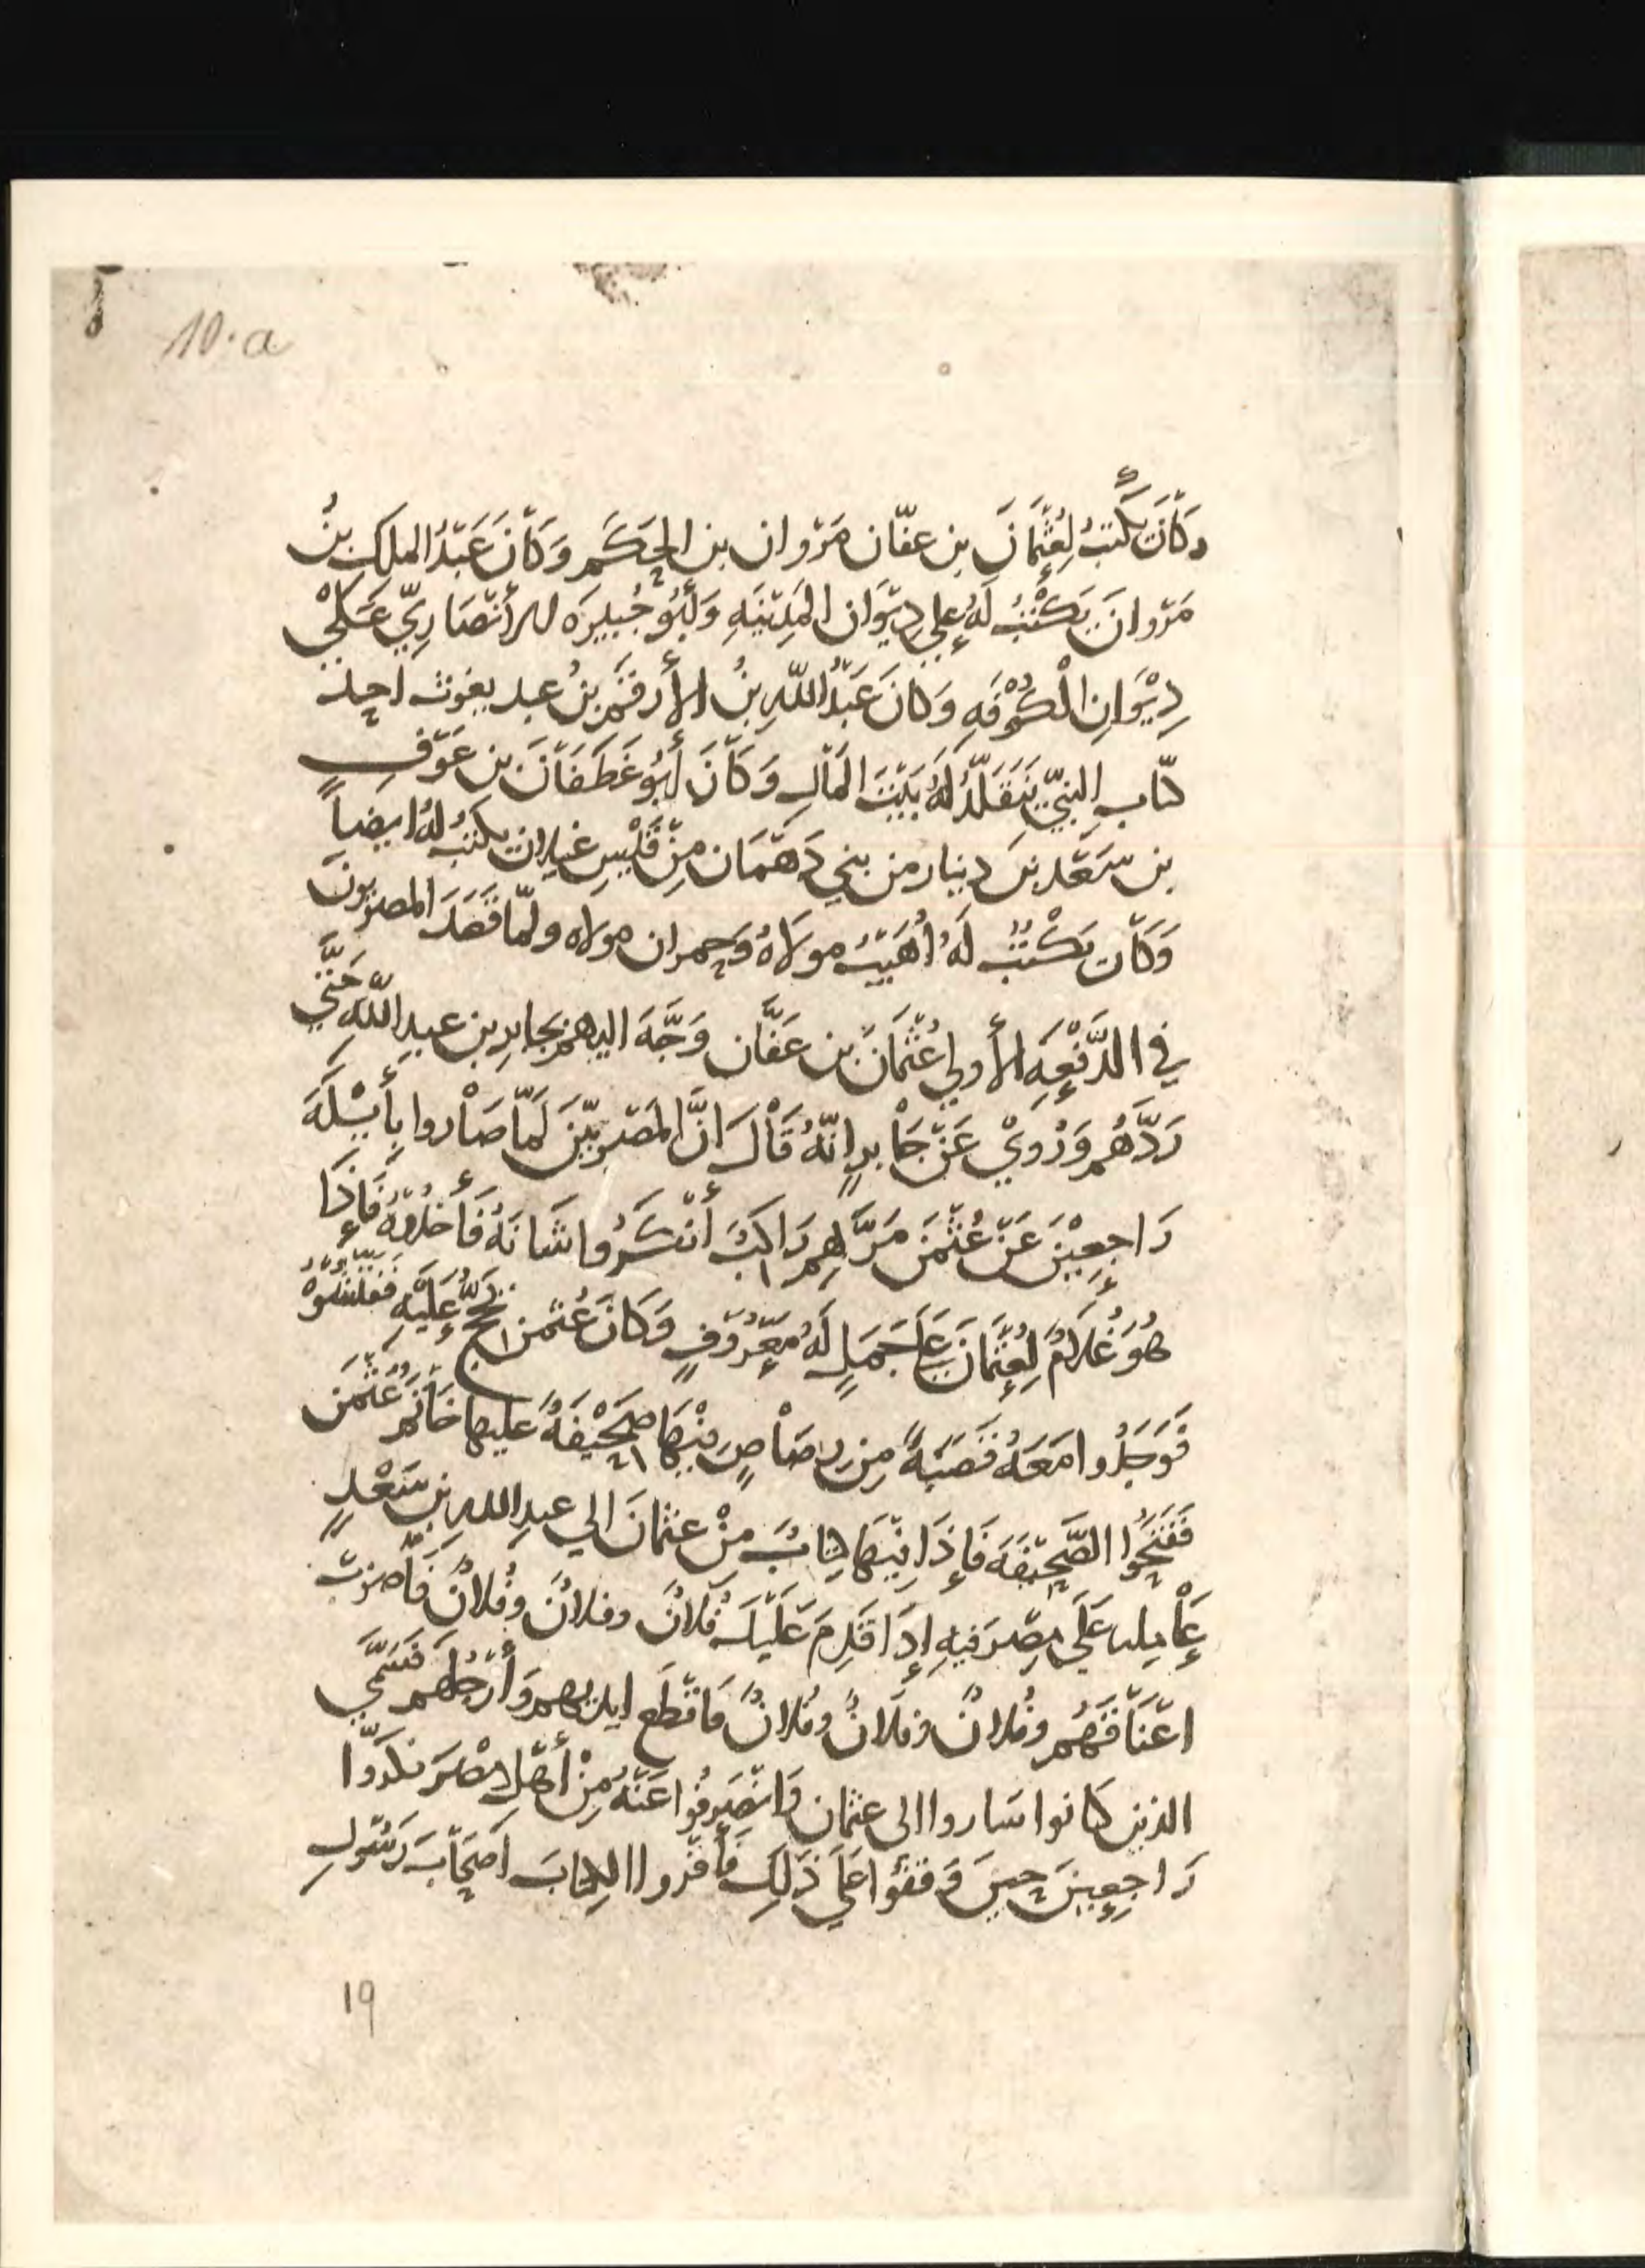 10.a
وكَانَ يكتبُ لِعُثْمَانَ بن عفّان مَرْوان بن الحَكَم وَكَانَ عَبْدُ الملك بنُ
مَرْوانَ يَكْتُبُ لَهُ عِلي دِيْوَان المَدِيْنَهِ وَأَبُوْ جُبيرَه الأَنْصَارِيّ عَلَيْ
دِيْوَانِ الْكُوْفَهِ وَكانَ عَبْدُ اللّهِ بنُ الأَرقَم بنُ عبد يغوث احد
كتّاب النبيّ يَتَقَلَّدُ لَهُ بَيْتَ المَالِ وَكَانَ أَبُو غَطَفَانَ بن عَوْفِ
بن سَعْد بنَ دينار من بني دَهْمَان مِنْ قَيْسِ غيلان يكتبُ لهُ ايضاً
وَكَان يَكْتُبُ لَهُ أُهَيْبُ مولَاهُ وَحمران مولاه ولمّا قَصَدَ المصريونَ
في الدَّفْعَهِ الأولي عُثْمَانَ بن عَفَّان وَجَّهَ اليهم بجابرِ بن عبدِ اللّهِ حَتَّي
رَدَّهُم وَرُوِيْ عَنْ جَاْبرٍ انّهُ قَاْلَ انَّ المَصْرِيّيْنَ لَمّا صَاْروا بِأَيْلَهَ
رَاجِعِيْنَ عَنْ عُثْمَن مَرَّ بِهِم رَاكبٌ أَنْكَرُوا شَانَهُ فَأَخذُوْهُ فَإِذَا
هُوَ غُلَامٌ لِعُثْمَانَ عَلَي جَمَلٍ لَهُ مَعْرُوْفٍ وَكَانَ عُثمن يَحُجُّ عَلَيْهِ فَفَتَّشُوْهُ
فَوَجَدُوا مَعَهُ قَصَبَهً مِن رصَاْصٍ فِيْهَا صَحِيْفَهٌ عليها خَاتَمُ عُثْمَن
فَفَتَحُوا الصَّحِيْفَهَ فَإِذَا فِيْهَا كِتَابٌ مِنْ عثمانَ الي عبدِ اللهِ بن سَعْدٍ
عَاْمِلِه عَلَي مِصْرَ فيهِ إِذَا قَدِمَ عَلَيْكَ فُلَانٌ وفلانٌ وفُلانٌ فَاضرِبْ
اعْنَاقَهُم وفُلانٌ وفلانٌ وفُلانٌ فَاقْطَع ايديهم وَأَرْجُلَهم فَسَمَّي
الذين كانوا سَاروا الى عثمان وَانْصَرِفُوا عَنْهُ مِنْ أَهْلِ مصْرَ فكرّوا
رَاجِعِيْنَ حينَ وَقَفُوا عَلَي ذَلِكَ فَأَقْرَوا الكِتابَ اصْحَابَ رَسُولِ
19